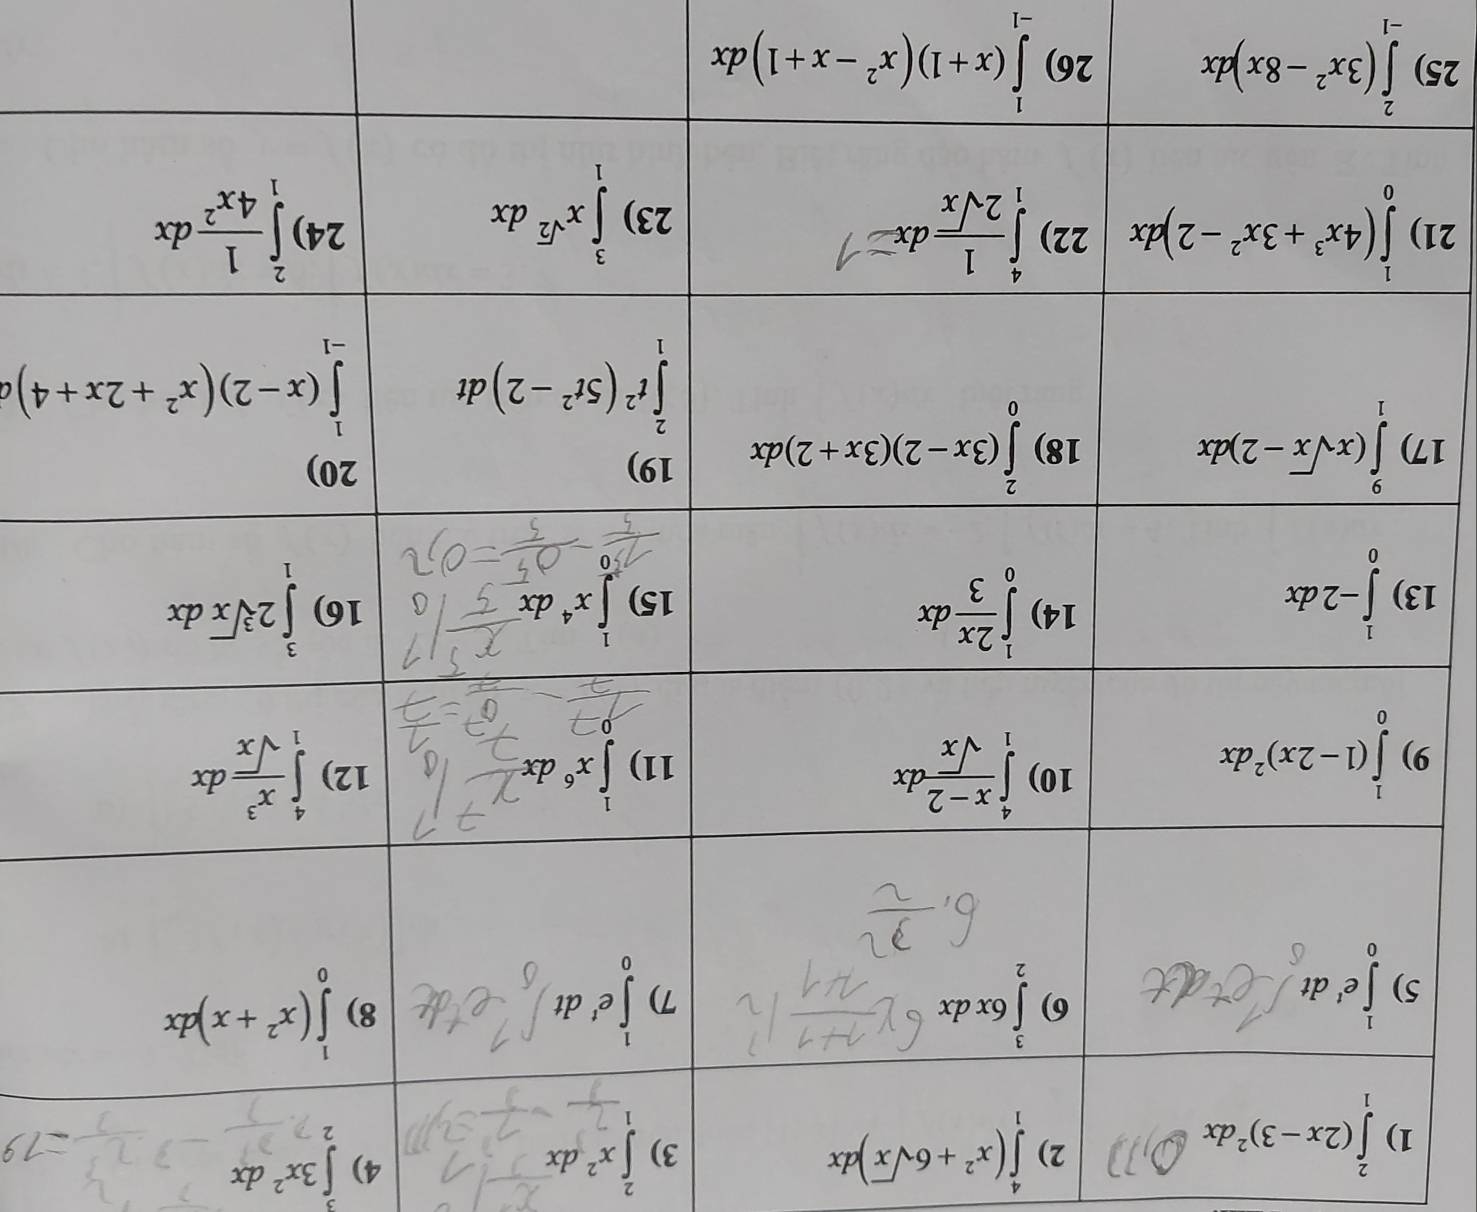 1) ∫₁² (2x − 3)² dx 0,33
2) ∫₁⁴ (x² + 6√x) dx
3) ∫₁² x² dx
4) ∫₂³ 3x² dx = 19
5) ∫₀¹ eᵗ dt ∫₀¹ eᵗ dt
6) ∫₂³ 6x dx
7) ∫₀¹ eᵗ dt ∫₀¹ eᵗ dt
8) ∫₀¹ (x² + x) dx
9) ∫₀¹ (1 − 2x)² dx
10) ∫₁⁴ (x − 2)/√x dx
11) ∫₀¹ x⁶ dx x⁷/7 |₀¹
1⁷/7 − 0⁷/7 = 1/7
12) ∫₁⁴ x³/√x dx
13) ∫₀¹ −2 dx
14) ∫₀¹ 2x/3 dx
15) ∫₀¹ x⁴ dx x⁵/5 |₀¹
1⁵/5 − 0⁵/5 = 0,2
16) ∫₁³ 2∛x dx
17) ∫₁⁹ (x√x − 2) dx
18) ∫₀² (3x − 2)(3x + 2) dx
19)
∫₁² t² (5t² − 2) dt
20)
∫₋₁¹ (x − 2)(x² + 2x + 4)
21) ∫₀¹ (4x³ + 3x² − 2) dx
22) ∫₁⁴ 1/(2√x) dx = 1
23) ∫₁³ x^√2 dx
24) ∫₁² 1/(4x²) dx
25) ∫₋₁² (3x² − 8x) dx
26) ∫₋₁¹ (x + 1)(x² − x + 1) dx